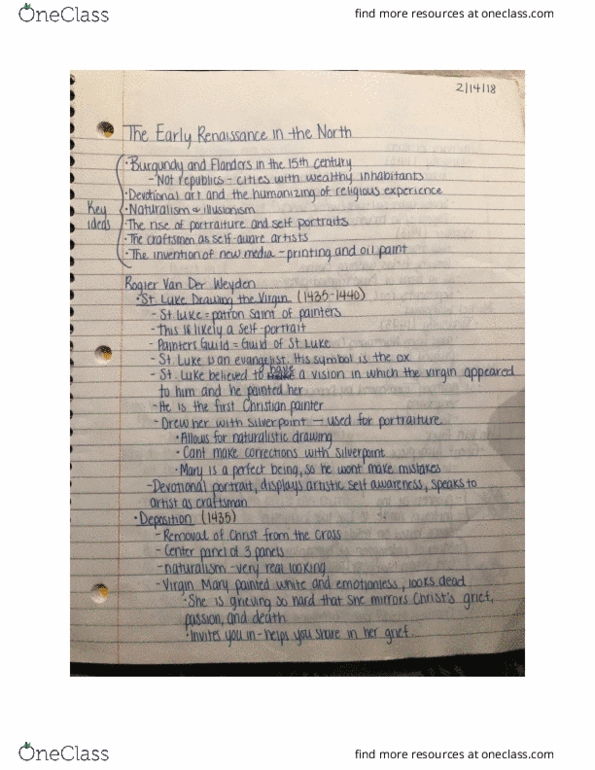 OneClass
find more resources at oneclass.com
2/14/18
The Early Renaissance in the North
• Burgundy and Flanders in the 15th century
- Not republics - cities with wealthy inhabitants
• Devotional art and the humanizing of religious experience
Key ideas
• Naturalism + illusionism
• The rise of portraiture and self portraits
• The craftsmen as self-aware artists
• The invention of new media - printing and oil paint
Rogier Van Der Weyden
• St. Luke Drawing the Virgin (1435-1440)
- St. Luke = patron saint of painters
- This is likely a self-portrait
- Painters Guild = Guild of St. Luke
- St. Luke is an evangelist. His symbol is the ox
- St. Luke believed to have a vision in which the virgin appeared
to him and he painted her
- He is the first Christian painter
- Drew her with silverpoint — used for portraiture
• Allows for naturalistic drawing
• Cant make corrections with silverpoint
• Mary is a perfect being, so he wont make mistakes
- Devotional portrait, displays artistic self awareness, speaks to
artist as craftsman
• Deposition (1435)
- Removal of Christ from the Cross
- Center panel of 3 panels
- naturalism - very real looking
- Virgin Mary painted white and emotionless, looks dead
• She is grieving so hard that she mirrors Christ's grief,
passion, and death
• Invites you in - helps you share in her grief
OneClass
find more resources at oneclass.com